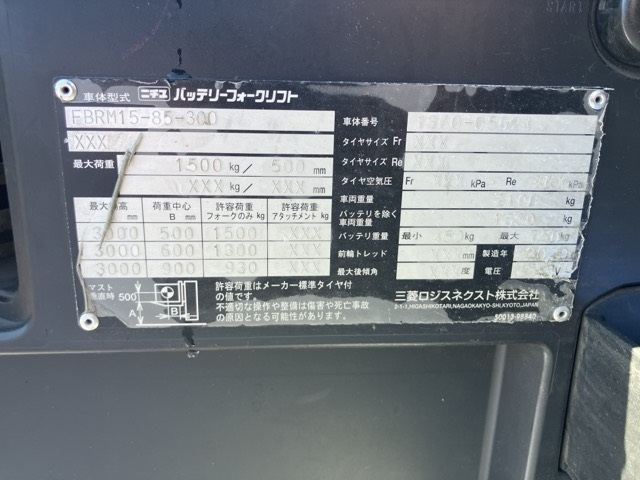 START
車体型式 ニチユ バッテリーフォークリフト
FBRM15-85-300
XXX
最大荷重 1500 kg/ 500 mm
XXX kg/ XXX mm
最大揚高 mm 荷重中心 B mm 許容荷重 フォークのみ kg 許容荷重 アタッチメント kg
3000 500 1500 XXX
3000 600 1300 XXX
3000 900 930 XXX
マスト垂直時 500 A B
許容荷重はメーカー標準タイヤ付
の値です。
不適切な操作や整備は傷害や死亡事故
の原因となる可能性があります。
車体番号
タイヤサイズ Fr
タイヤサイズ Re
タイヤ空気圧 Fr kPa Re kPa
車両重量
バッテリを除く車両重量
バッテリ重量 最小 最大
前輪トレッド mm 製造年
最大後傾角 度 電圧 V
三菱ロジスネクスト株式会社
2-1-1,HIGASHIKOTARI,NAGAOKAKYO-SHI,KYOTO,JAPAN